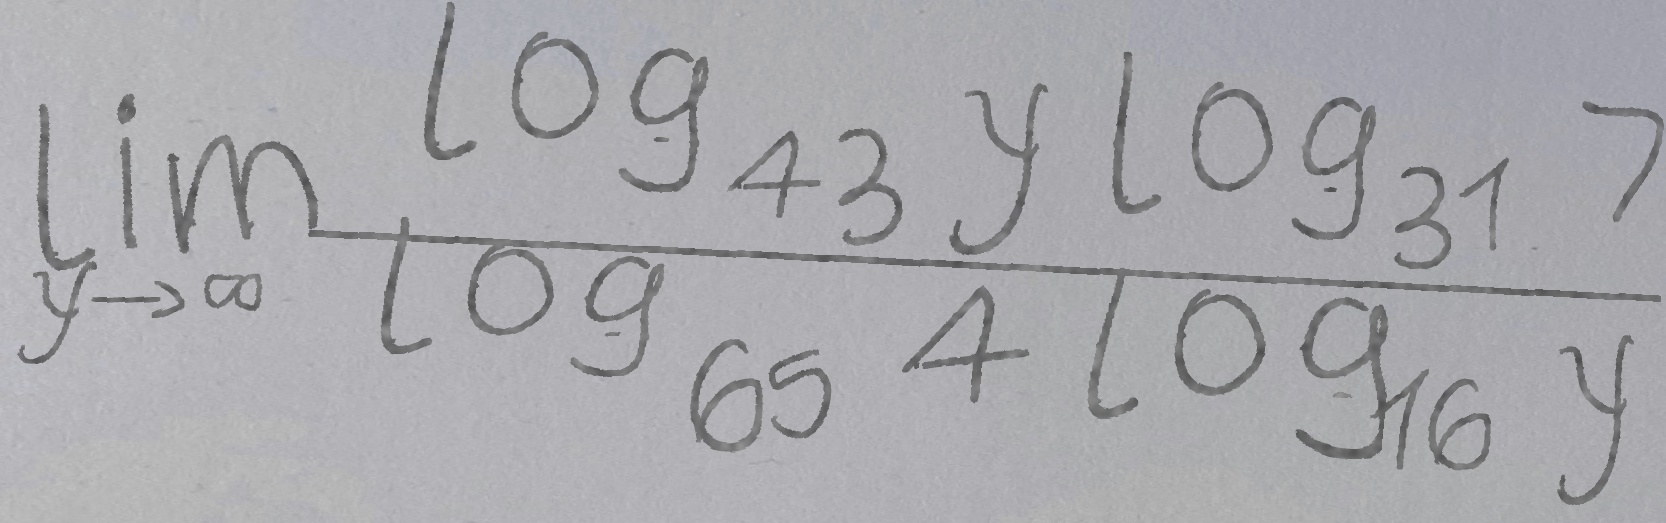 lim_{y→∞} \frac{log_{43} y log_{31} 7}{log_{65} 4 log_{16} y}